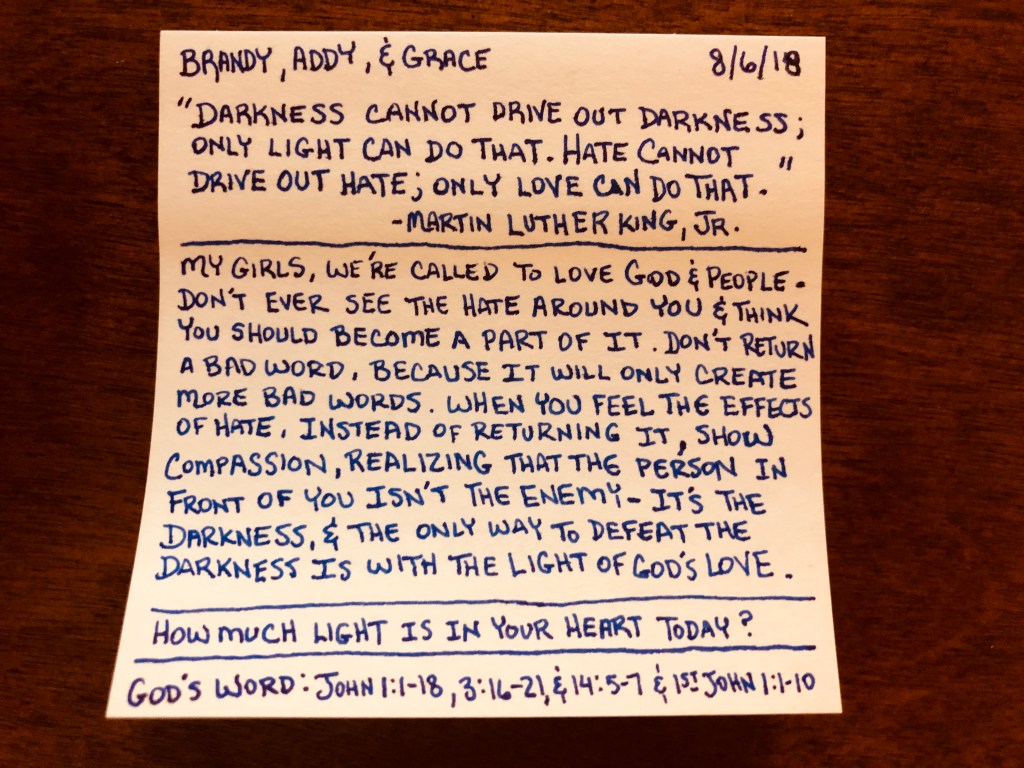 BRANDY, ADDY, & GRACE 8/6/18
"DARKNESS CANNOT DRIVE OUT DARKNESS;
ONLY LIGHT CAN DO THAT. HATE CANNOT
DRIVE OUT HATE; ONLY LOVE CAN DO THAT."
-MARTIN LUTHER KING, JR.
MY GIRLS, WE'RE CALLED TO LOVE GOD & PEOPLE.
DON'T EVER SEE THE HATE AROUND YOU & THINK
YOU SHOULD BECOME A PART OF IT. DON'T RETURN
A BAD WORD, BECAUSE IT WILL ONLY CREATE
MORE BAD WORDS. WHEN YOU FEEL THE EFFECTS
OF HATE, INSTEAD OF RETURNING IT, SHOW
COMPASSION, REALIZING THAT THE PERSON IN
FRONT OF YOU ISN'T THE ENEMY- IT'S THE
DARKNESS, & THE ONLY WAY TO DEFEAT THE
DARKNESS IS WITH THE LIGHT OF GOD'S LOVE.
HOW MUCH LIGHT IS IN YOUR HEART TODAY?
GOD'S WORD: JOHN 1:1-18, 3:16-21, & 14:5-7 & 1ST JOHN 1:1-10